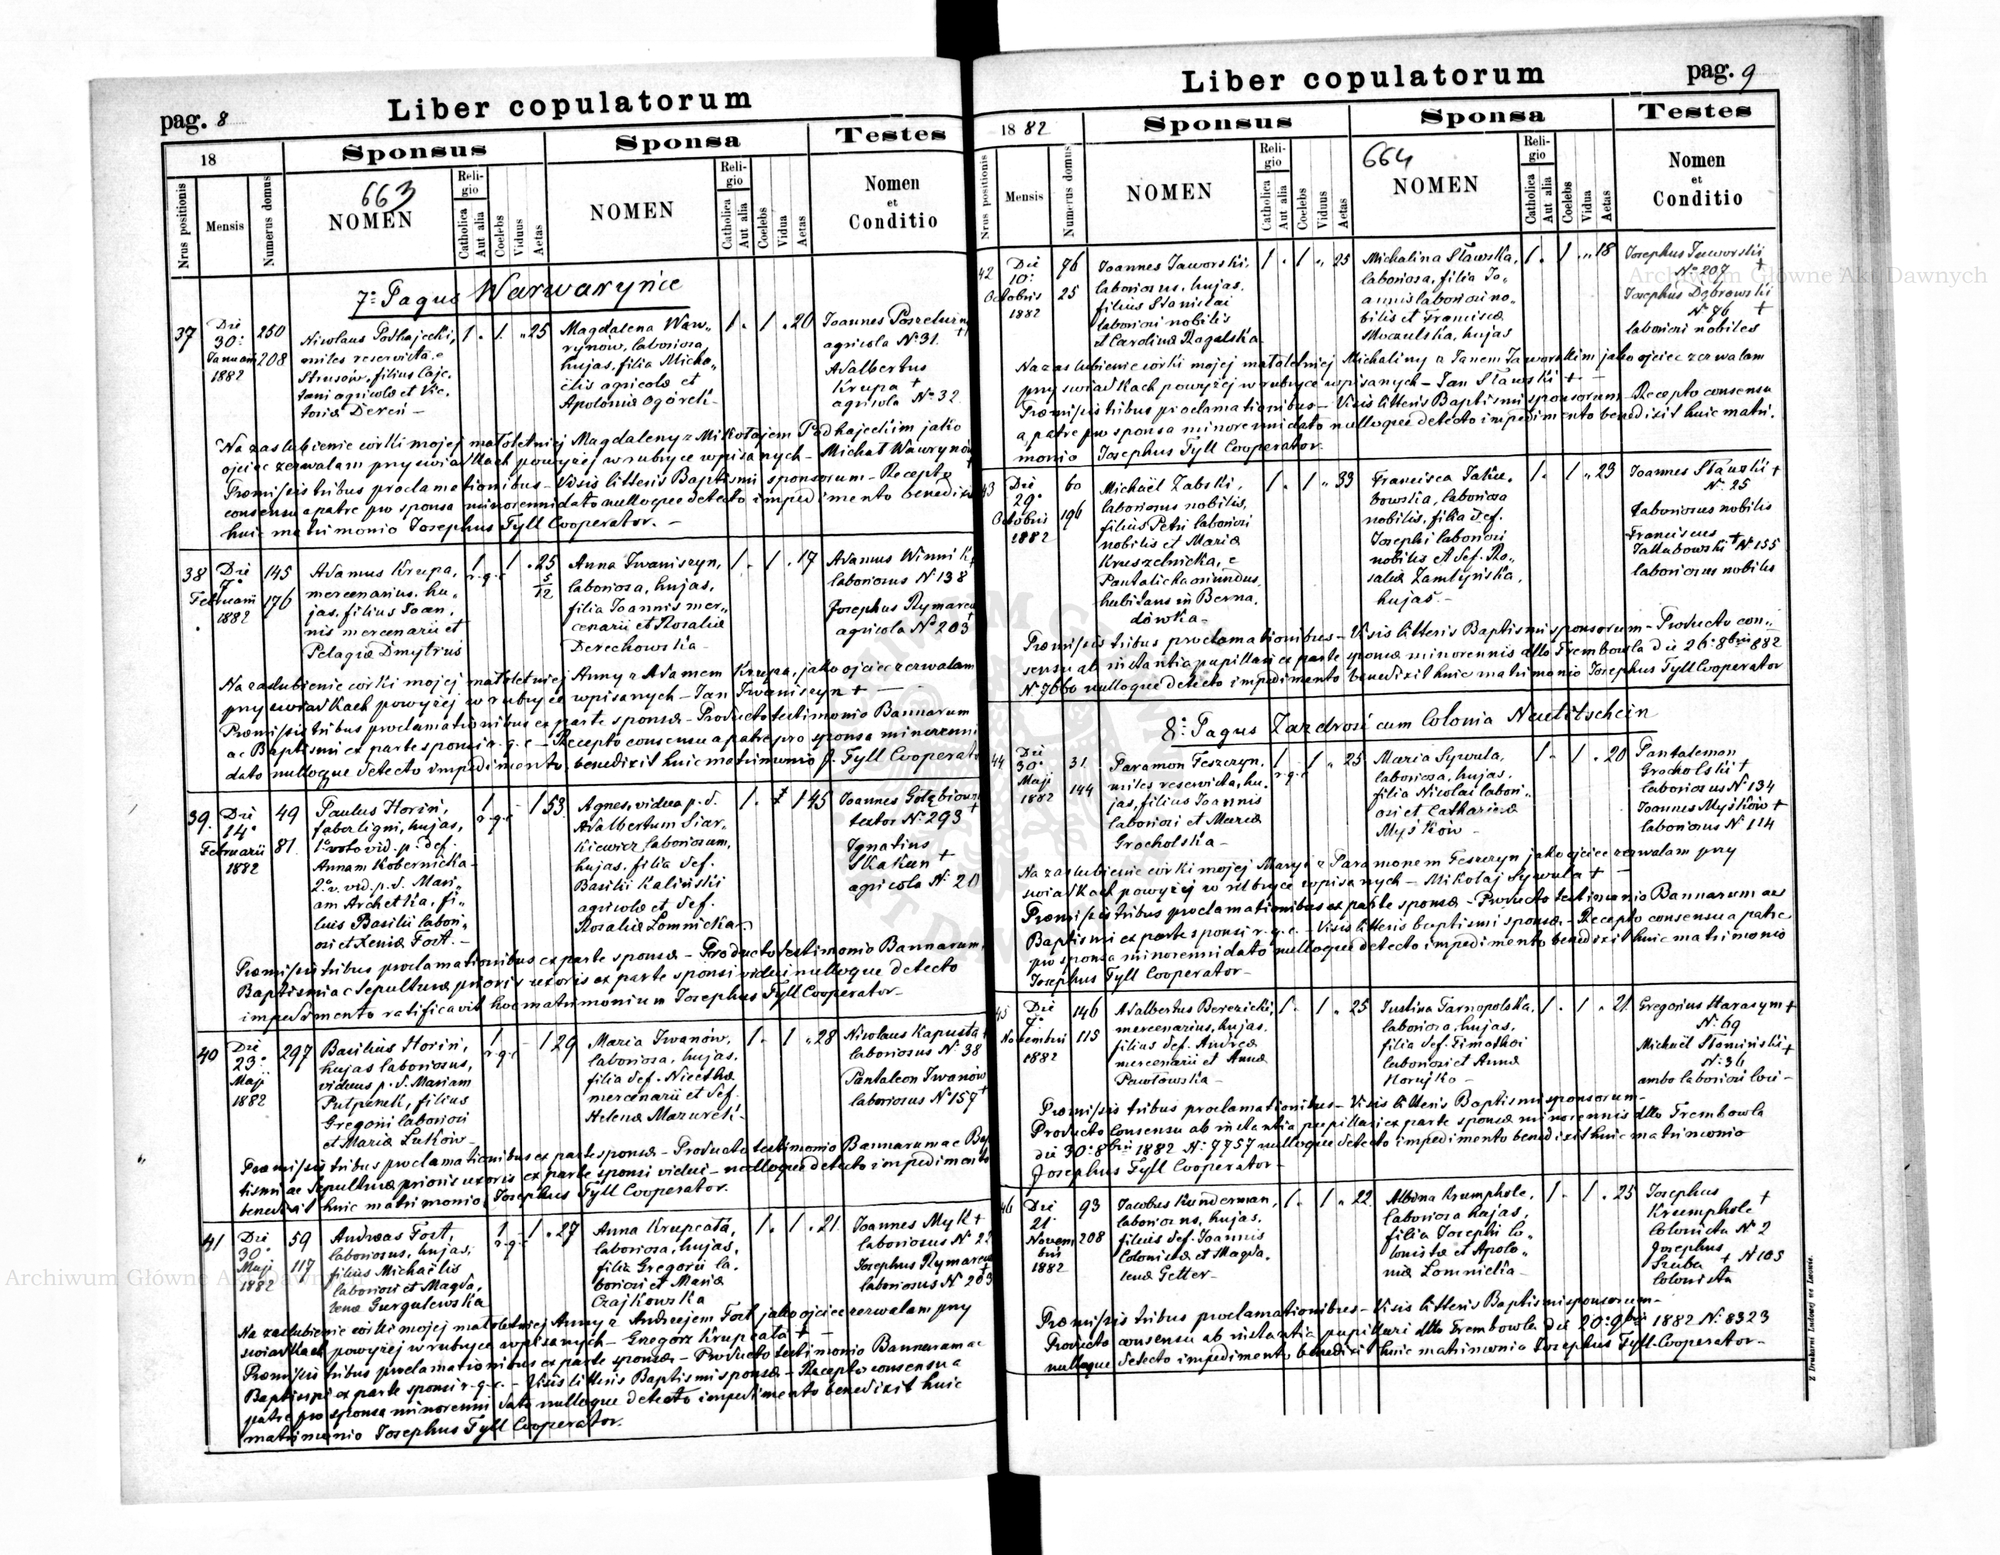 pag. 8
Liber copulatorum
18
Sponsus
Sponsa
Testes
Nrus positionis
Mensis
Numerus domus
663
NOMEN
Religio
Catholica
Aut alia
Coelebs
Viduus
Aetas
NOMEN
Religio
Catholica
Aut alia
Coelebs
Vidua
Aetas
Nomen
et
Conditio
7º Pagus Warwaryńce
37
Die
30º
Januarii
1882
250
208
Nicolaus Podhajecki,
miles reservista e
Strusów, filius Caje-
tani agricolæ et Vic-
toriæ Dereń –
1 . 1 . „ 25
Magdalena Waw-
rynów, laboriosa,
hujas, filia Micha-
ëlis agricolæ et
Apoloniæ Ogórek –
1 . 1 . 20
agricola Nº 31.
Adalbertus
Krupa +
agricola Nº 32
Na zaslubienie córki mojej małoletniej Magdaleny z Mikołajem Podhajeckim jako
ojciec zezwalam przy swiadkach powyżej w rubryce wpisanych – Michał Wawrynów
Præmissis tribus proclamationibus – Visis litteris Baptismi sponsorum – Recepto
consensu a patre pro sponsa minorenni dato nulloque detecto impedimento benedixit
huic matrimonio Josephus Tyll Cooperator. –
38
Die
7º
Februarii
1882
145
176
Adamus Krupa,
mercenarius, hu-
jas, filius Joan-
nis mercenarii et
Pelagiæ Dmytrus
1 r.g.c 1 . 25 5/12
Anna Iwaniszyn,
laboriosa, hujas,
filia Joannis mer-
cenarii et Rosaliæ
Derechowska –
1 . 1 . 17
Adamus Winnik +
laboriosus Nº 138
Josephus Rymarcz
agricola Nº 203
Na zaslubienie córki mojej małoletniej Anny z Adamem Krupa, jako ojciec zezwalam
przy swiadkach powyżej w rubryce wpisanych – Jan Iwaniszyn + –
Præmissis tribus proclamationibus ex parte sponsæ – Producto testimonio Bannorum
ac Baptismi ex parte sponsi r.g.c – Recepto consensu a patre pro sponsa minorenni
dato nulloque detecto impedimento, benedixit huic matrimonio J. Tyll Cooperator
39.
Die
14º
Februarii
1882
49
81
Paulus Horin,
faber ligni, hujas,
1º voto vid. p. def.
Annam Kobernicka
2º v. vid. p. d. Mari-
am Archetka, fi-
lius Basilii labori-
osi et Xeniæ Fort. –
1 r.g.c – 1 53
Agnes, vidua p. d.
Adalbertum Siar-
kiewicz laboriosum,
hujas, filia def.
Basilii Kaliński
agricolæ et def.
Rosaliæ Łomnicka
1 . 1 45
textor Nº 293 +
Ignatius
Skakun +
agricola Nº 20
Præmissis tribus proclamationibus ex parte sponsæ – Producto testimonio Bannorum,
Baptismi ac Sepulturæ prioris uxoris ex parte sponsi vidui nulloque detecto
impedimento ratificavit hoc matrimonium Josephus Tyll Cooperator –
40
Die
23º
Maji
1882
297
Basilius Horin,
hujas laboriosus,
viduus p. d. Mariam
filius
Gregorii laboriosi
et Mariæ Łuków –
1 r.g.c – 1 29
Maria Iwanów,
laboriosa, hujas,
filia def. Nicetæ
mercenarii et def.
Helenæ Mazurek –
1 . 1 „ 28
Nicolaus Kapusta +
laboriosus Nº 38
Pantaleon Iwanów
laboriosus Nº 157 +
Præmissis tribus proclamationibus ex parte sponsæ – Producto testimonio Bannorum ac Bap
tismi ac Sepulturæ prioris uxoris ex parte sponsi vidui – nulloque detecto impedimento
benedixit huic matrimonio Josephus Tyll Cooperator.
41
Die
30º
Maji
1882
59
117
Andreas Fort,
laboriosus, hujas,
filius Michaëlis
laboriosi et Magda-
lenæ Gurgulewska
1 r.g.c 1 . 27
Anna Krupcała,
laboriosa, hujas,
filia Gregorii la-
boriosi et Mariæ
Czajkowska
1 . 1 . 21.
Joannes Myk +
laboriosus Nº
Josephus Rymarcz
laboriosus Nº 203
Na zaslubienie córki mojej małoletniej Anny z Andrzejem Fort jako ojciec zezwalam przy
swiadkach powyżej w rubryce wpisanych – Gregórz Krupcała + –
Præmissis tribus proclamationibus ex parte sponsæ – Producto testimonio Bannorum ac
Baptismi ex parte sponsi r.g.c. – Visis litteris Baptismi sponsæ – Recepto consensu a
patre pro sponsa minorenni dato nulloque detecto impedimento benedixit huic
matrimonio Josephus Tyll Cooperator.
Liber copulatorum
pag. 9
1882
Sponsus
Sponsa
Testes
Nrus positionis
Mensis
Numerus domus
NOMEN
Religio
Catholica
Aut alia
Coelebs
Viduus
Aetas
664
NOMEN
Religio
Catholica
Aut alia
Coelebs
Vidua
Aetas
Nomen
et
Conditio
42
Die
10º
Octobris
1882
76
25
Joannes Jaworski,
laboriosus, hujas,
filius Stanislai
laboriosi nobilis
et Carolinæ Rogalska
1 . 1 „ 25
Michalina Sławska,
laboriosa, filia Jo-
annis laboriosi no-
bilis et Franciscæ
Moczulska, hujas
1 . 1 „ 18
Josephus Jaworski
Nº 207 +
Josephus Dąbrowski
Nº 76 +
laboriosi nobiles
Na zaslubienie córki mojej małoletniej Michaliny z Janem Jaworskim jako ojciec zezwalam
przy swiadkach powyżej w rubryce wpisanych – Jan Sławski + –
Præmissis tribus proclamationibus – Visis litteris Baptismi sponsorum – Recepto consensu
a patre pro sponsa minorenni dato nulloque detecto impedimento benedixit huic matri-
monio Josephus Tyll Cooperator.
43
Die
29º
Octobris
1882
60
196
Michaël Zabski,
laboriosus nobilis,
filius Petri laboriosi
nobilis et Mariæ
Kruszelnicka, e
Pantalicha oriundus,
habitans in Berna-
dówka –
1 . 1 „ 33
Francisca Jaku-
bowska, laboriosa
nobilis, filia def.
Josephi laboriosi
nobilis et def. Ro-
saliæ Zamłyńska,
hujas –
1 . 1 „ 23
Joannes Sławski +
Nº 25
laboriosus nobilis
Franciscus
Jakubowski + Nº 155
laboriosus nobilis
Præmissis tribus proclamationibus – Visis litteris Baptismi sponsorum – Producto con-
sensu ab instantia pupillari ex parte sponsæ minorennis dtto Trembowla die 26º 8bris 882
Nº 7660 nulloque detecto impedimento benedixit huic matrimonio Josephus Tyll Cooperator
8º Pagus Zazdrość cum Colonia Neutitschein
44
Die
30º
Maji
1882
31
144
Paramon Teszczyn,
miles reservista, hu-
jas, filius Joannis
laboriosi et Mariæ
Grocholska –
1 r.g.c 1 „ 25
Maria Sywula,
laboriosa, hujas,
filia Nicolai labori-
osi et Catharinæ
Myśków –
1 . 1 . 20
Pantalemon
Grocholski +
laboriosus Nº 134
Joannes Myśków +
laboriosus Nº 114
Na zaslubienie córki mojej Maryi z Paramonem Teszczyn jako ojciec zezwalam przy
swiadkach powyżej w rubryce wpisanych – Mikołaj Sywula + –
Præmissis tribus proclamationibus ex parte sponsæ – Producto testimonio Bannorum ac
Baptismi ex parte sponsi r.g.c. – Visis litteris baptismi sponsæ – Recepto consensu a patre
pro sponsa minorenni dato nulloque detecto impedimento benedixit huic matrimonio
Josephus Tyll Cooperator –
45
Die
7º
Novembris
1882
146
115
Adalbertus Berezicki,
mercenarius, hujas,
filius def. Andreæ
mercenarii et Annæ
Pawłowska –
1 . 1 „ 25
Justina Tarnopolska,
laboriosa, hujas,
filia def. Timothei
laboriosi et Annæ
Horajko –
1 . 1 „ 21.
Gregorius Harasym +
Nº 69
Michaël Słomiński +
Nº 36
ambo laboriosi loci –
Præmissis tribus proclamationibus – Visis litteris Baptismi sponsorum –
Producto Consensu ab instantia pupillari ex parte sponsæ minorennis dtto Trembowla
die 30º 8bris 1882 Nº 7757 nulloque detecto impedimento benedixit huic matrimonio
Josephus Tyll Cooperator –
46
Die
21
Novem
bris
1882
93
208
Jacobus Kunderman,
laboriosus, hujas,
filius def. Joannis
Colonistæ et Magda-
lenæ Getter –
1 . 1 „ 22
Albina Krumphole,
laboriosa hujas,
filia Josephi Co-
lonistæ et Apolo-
niæ Łomnicka –
1 . 1 . 25
Josephus
Krumphole +
Colonista Nº 2
Josephus
Szuba + Nº 105
Colonista
Præmissis tribus proclamationibus – Visis litteris Baptismi sponsorum –
Producto consensu ab instantia pupillari dtto Trembowla die 20º 9bris 1882 Nº 8323
nulloque detecto impedimento benedixit huic matrimonio Josephus Tyll Cooperator –
Z Drukarni Ludowej we Lwowie.
Archiwum Główne Akt Dawnych
Archiwum Główne Akt Dawnych